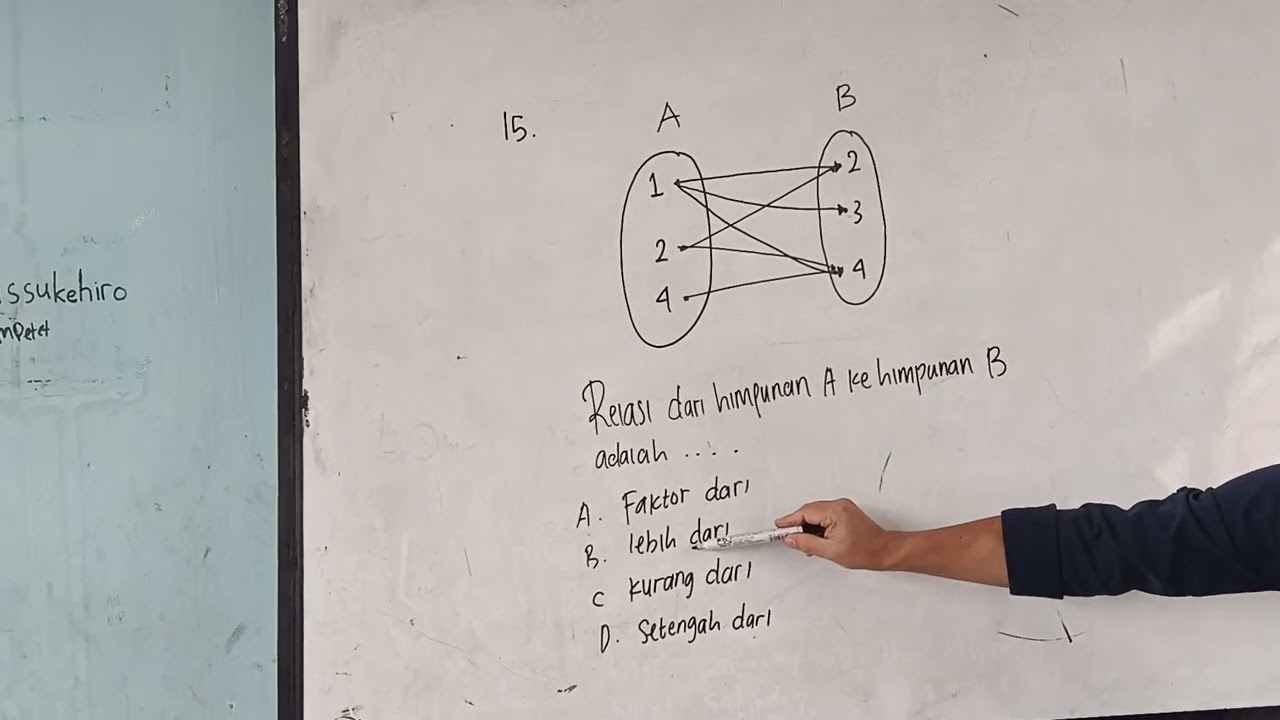 ssukehiro
15.
A
B
1
2
4
2
3
4
Relasi dari himpunan A ke himpunan B
adalah ....
A. Faktor dari
B. lebih dari
C kurang dari
D. Setengah dari